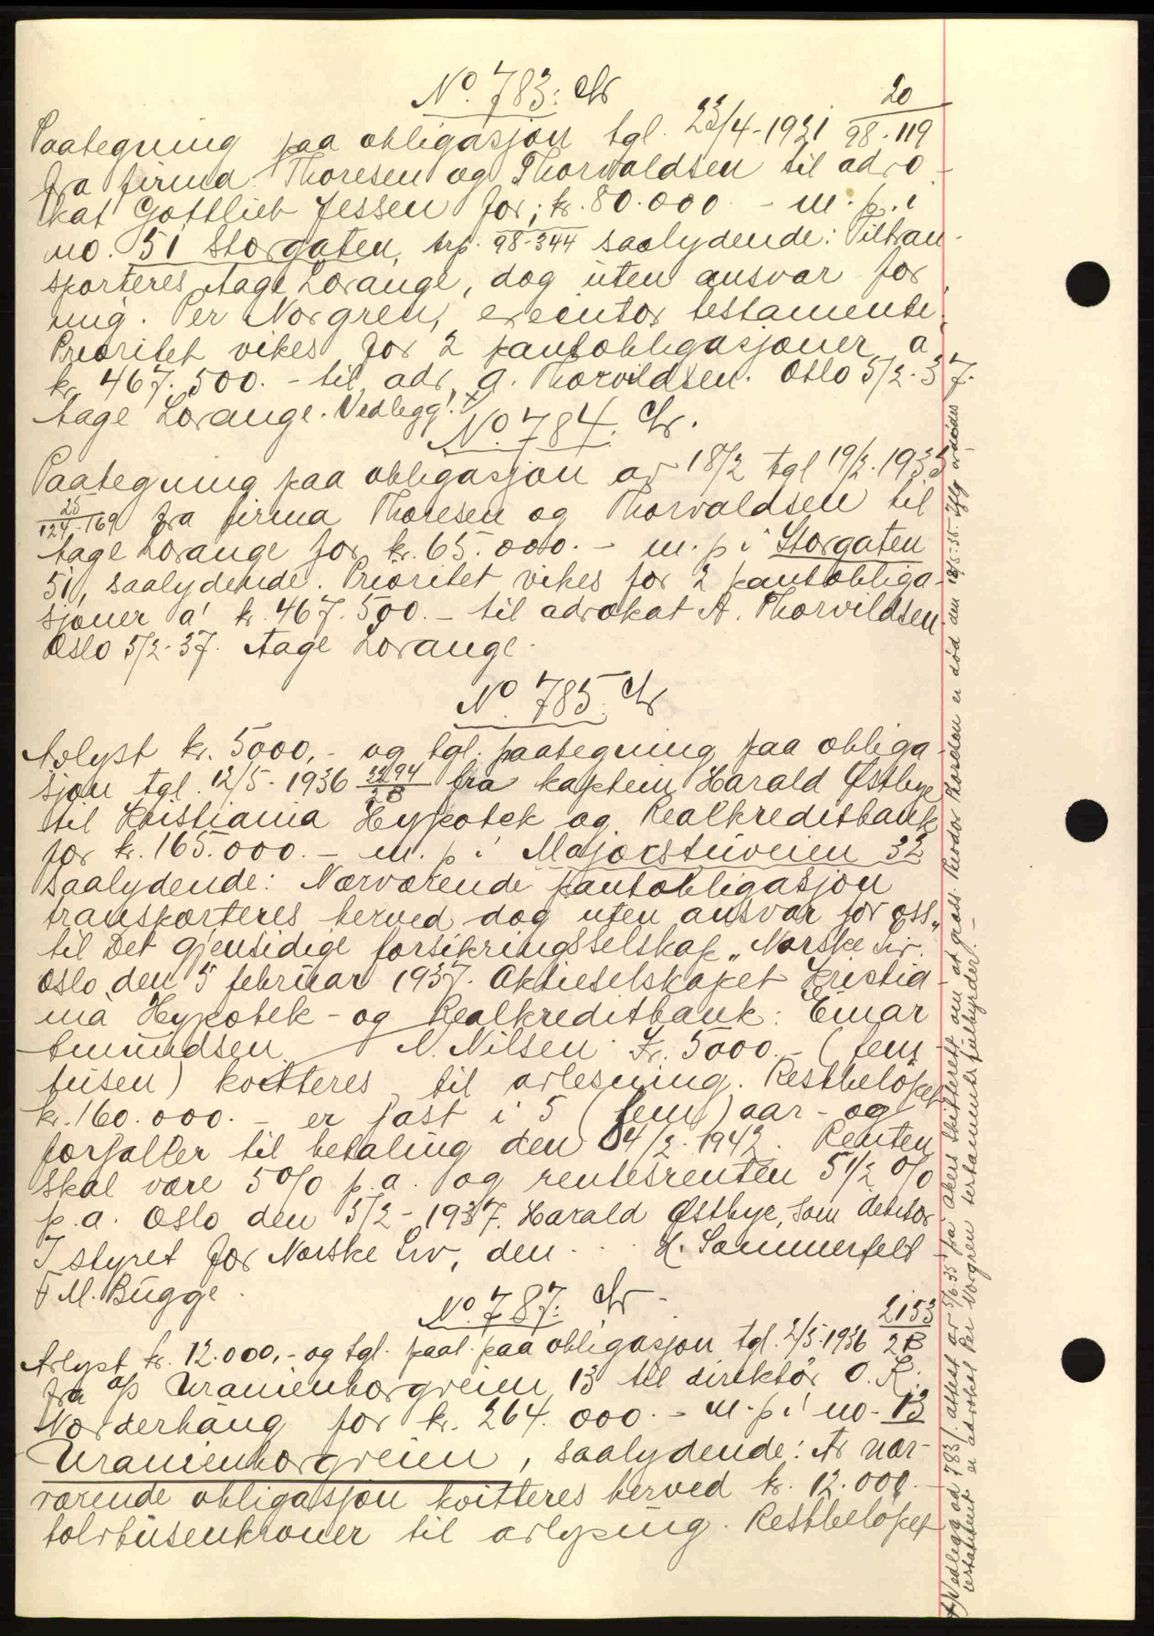 No. 783:
20
Paategning paa obligasjon tgl. 23/4-1921 98-119
fra firma Thoresen og Thorvaldsen til advo-
kat Gottlieb Jessen for kr. 80.000.- m. p. i
no. 51 Storgaten, trp. 98-344 saalydende: Tiltran-
sporteres Aage Lorange, dog uten ansvar for
mig. Per Norgren, executor testamenti.
Prioritet vikes for 2 pantobligasjoner a
kr. 467.500.- til adv. A. Thorvildsen. Oslo 5/2-37.
Aage Lorange. Vedlegg!
No. 784:
Paategning paa obligasjon av 18/2 tgl 19/2-1935
25
124-169 fra firma Thoresen og Thorvaldsen til
Aage Lorange for kr. 65.000.- m. p i Storgaten
51, saalydende. Prioritet vikes for 2 pantobliga-
sjoner a' kr. 467.500.- til advokat A. Thorvildsen.
Oslo 5/2-37. Aage Lorange.
No. 785:
Avlyst kr. 5000.- og tgl. paategning paa obliga-
sjon tgl. 12/5-1936 fra kaptein Harald Østbye
til Kristiania Hypotek og Realkreditbank
for kr. 165.000.- m. p i Majorstuveien 32
saalydende: Nærværende pantobligasjon
transporteres herved dog uten ansvar for oss
til Det gjensidige forsikringsselskap „Norske Liv".
Oslo den 5 februar 1937. Aktieselskapet Kristia-
nia Hypotek- og Realkreditbank: Einar
Amundsen N. Nilsen. Kr. 5000.- (fem
tusen) kvitteres til avlesning. Restbeløpet
kr. 160.000.- er fast i 5 (fem) aar - og
forfaller til betaling den 4/2-1942. Renten
skal være 5% p.a. og rentesrenten 5½ %
p.a. Oslo den 5/2-1937. Harald Østbye, som debitor
I styret for Norske Liv, den .. H. Sommerfelt
F M. Bugge.
No. 787:
2153
Avlyst kr. 12.000,- og tgl. paat. paa obligasjon tgl. 2/5-1936 2B
fra a/s Uranienborgveien 13 til direktør O. K.
Norderhaug for kr. 264.000.- m. p i no. 13
Uranienborgveien, saalydende: Av nær-
værende obligasjon kvitteres herved kr. 12.000.-
tolvtusenkroner til avlysning. Restbeløpet
Vedlegg ad 783/: attest av 5/6-35 fra Akers skifterett om at gross. Theodor Thoresen er død den 18/5-35. Iflg.
testament er advokat Per Norgren testamentsfullbyrder.-